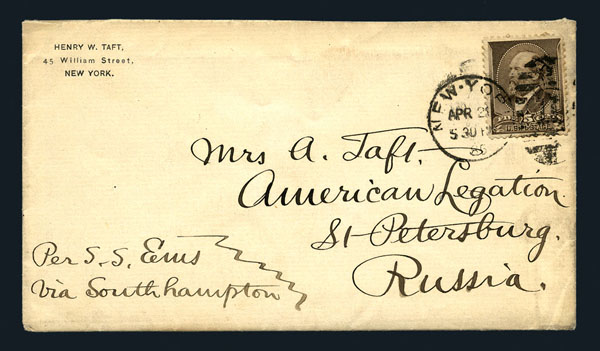 HENRY W. TAFT,
45 William Street,
NEW YORK.
NEW-YO
APR 2
5 30
Mrs A. Taft.
American Legation
St-Petersburg.
Russia.
Per S.S. Ems
Via Southhampton